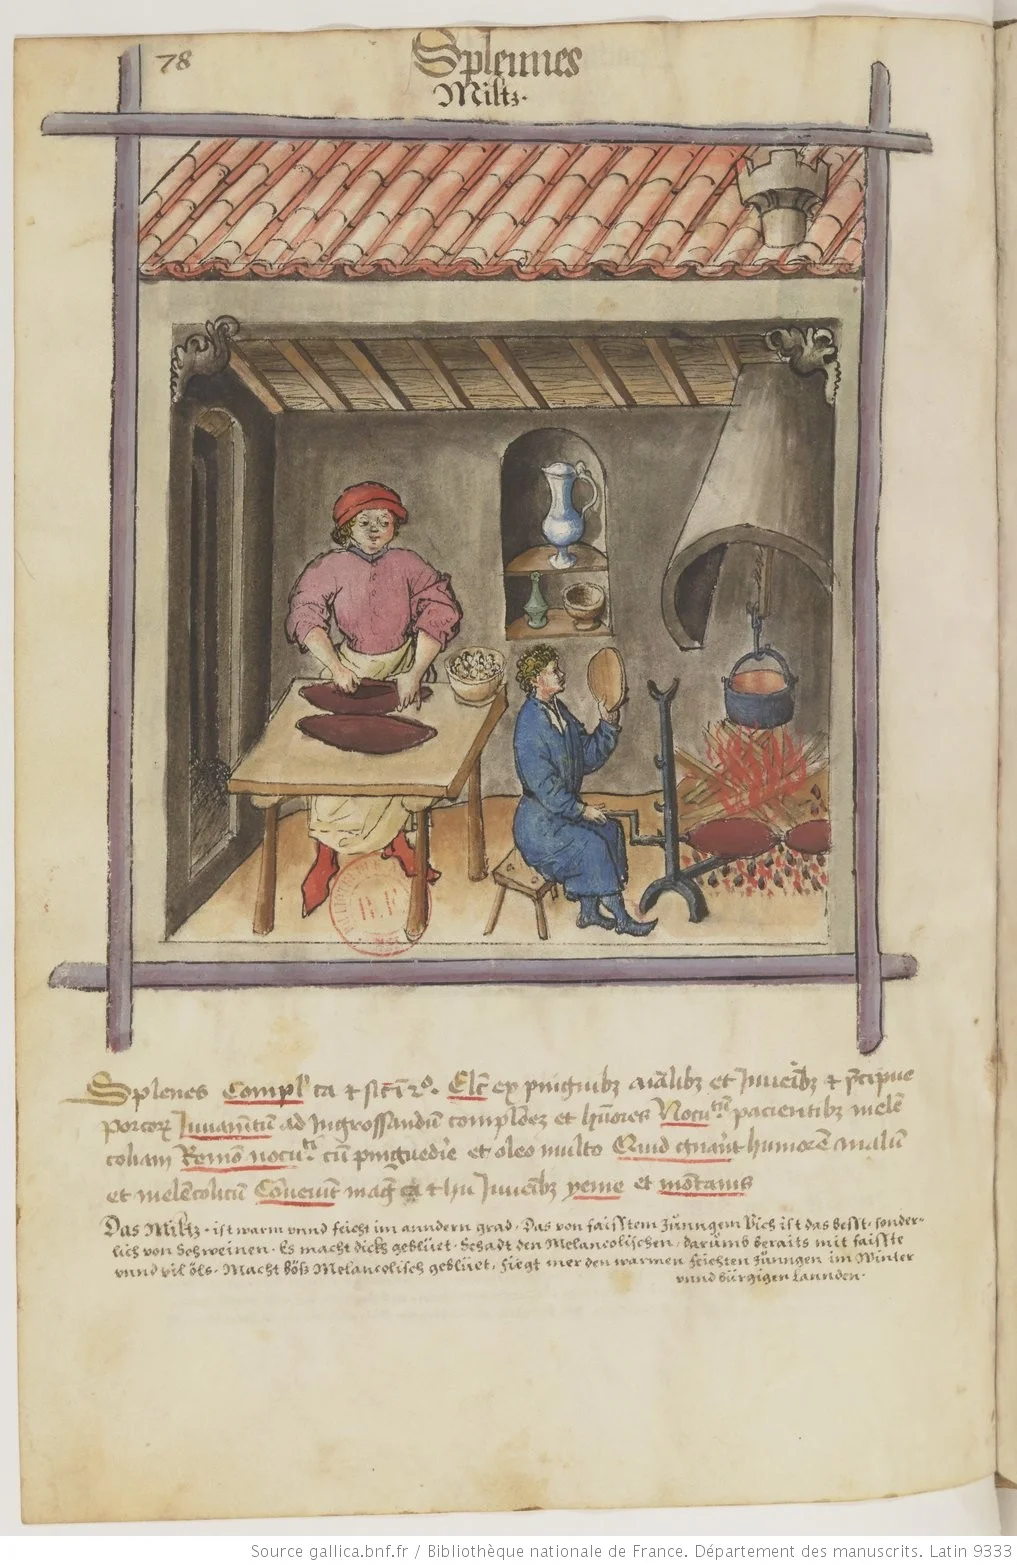 78
Splennes
Miltz.
Splenes Compl' ca et sicc in 2º. Elcō ex pinguibz aīalibz et Juveībz et p̄cipue
porcorz Juvamētum ad Ingrossandū complōes et hūores Nocu pacientibz melē
coliam Remō nocu cū pinguedīe et oleo multo Quid gnāt humorē malū
et melēcolicū Cōvenit mag ca et hu Juveībz yeme et mōtanis
Das Miltz · ist warm vnnd feicht im anndern grad · Das von faisstem Jünngem Vich ist das besst · sonder-
lich von Schweinen · Es macht dickh geblüet · Schadt den Melancolischen, darumb beraits mit faisste
vnnd vil öls · Macht böß Melancolisch geblüet, fiegt mer den warmen feichten Jünngen im Winter
vnnd bürgigen Lannden ·
Source gallica.bnf.fr / Bibliothèque nationale de France. Département des manuscrits. Latin 9333